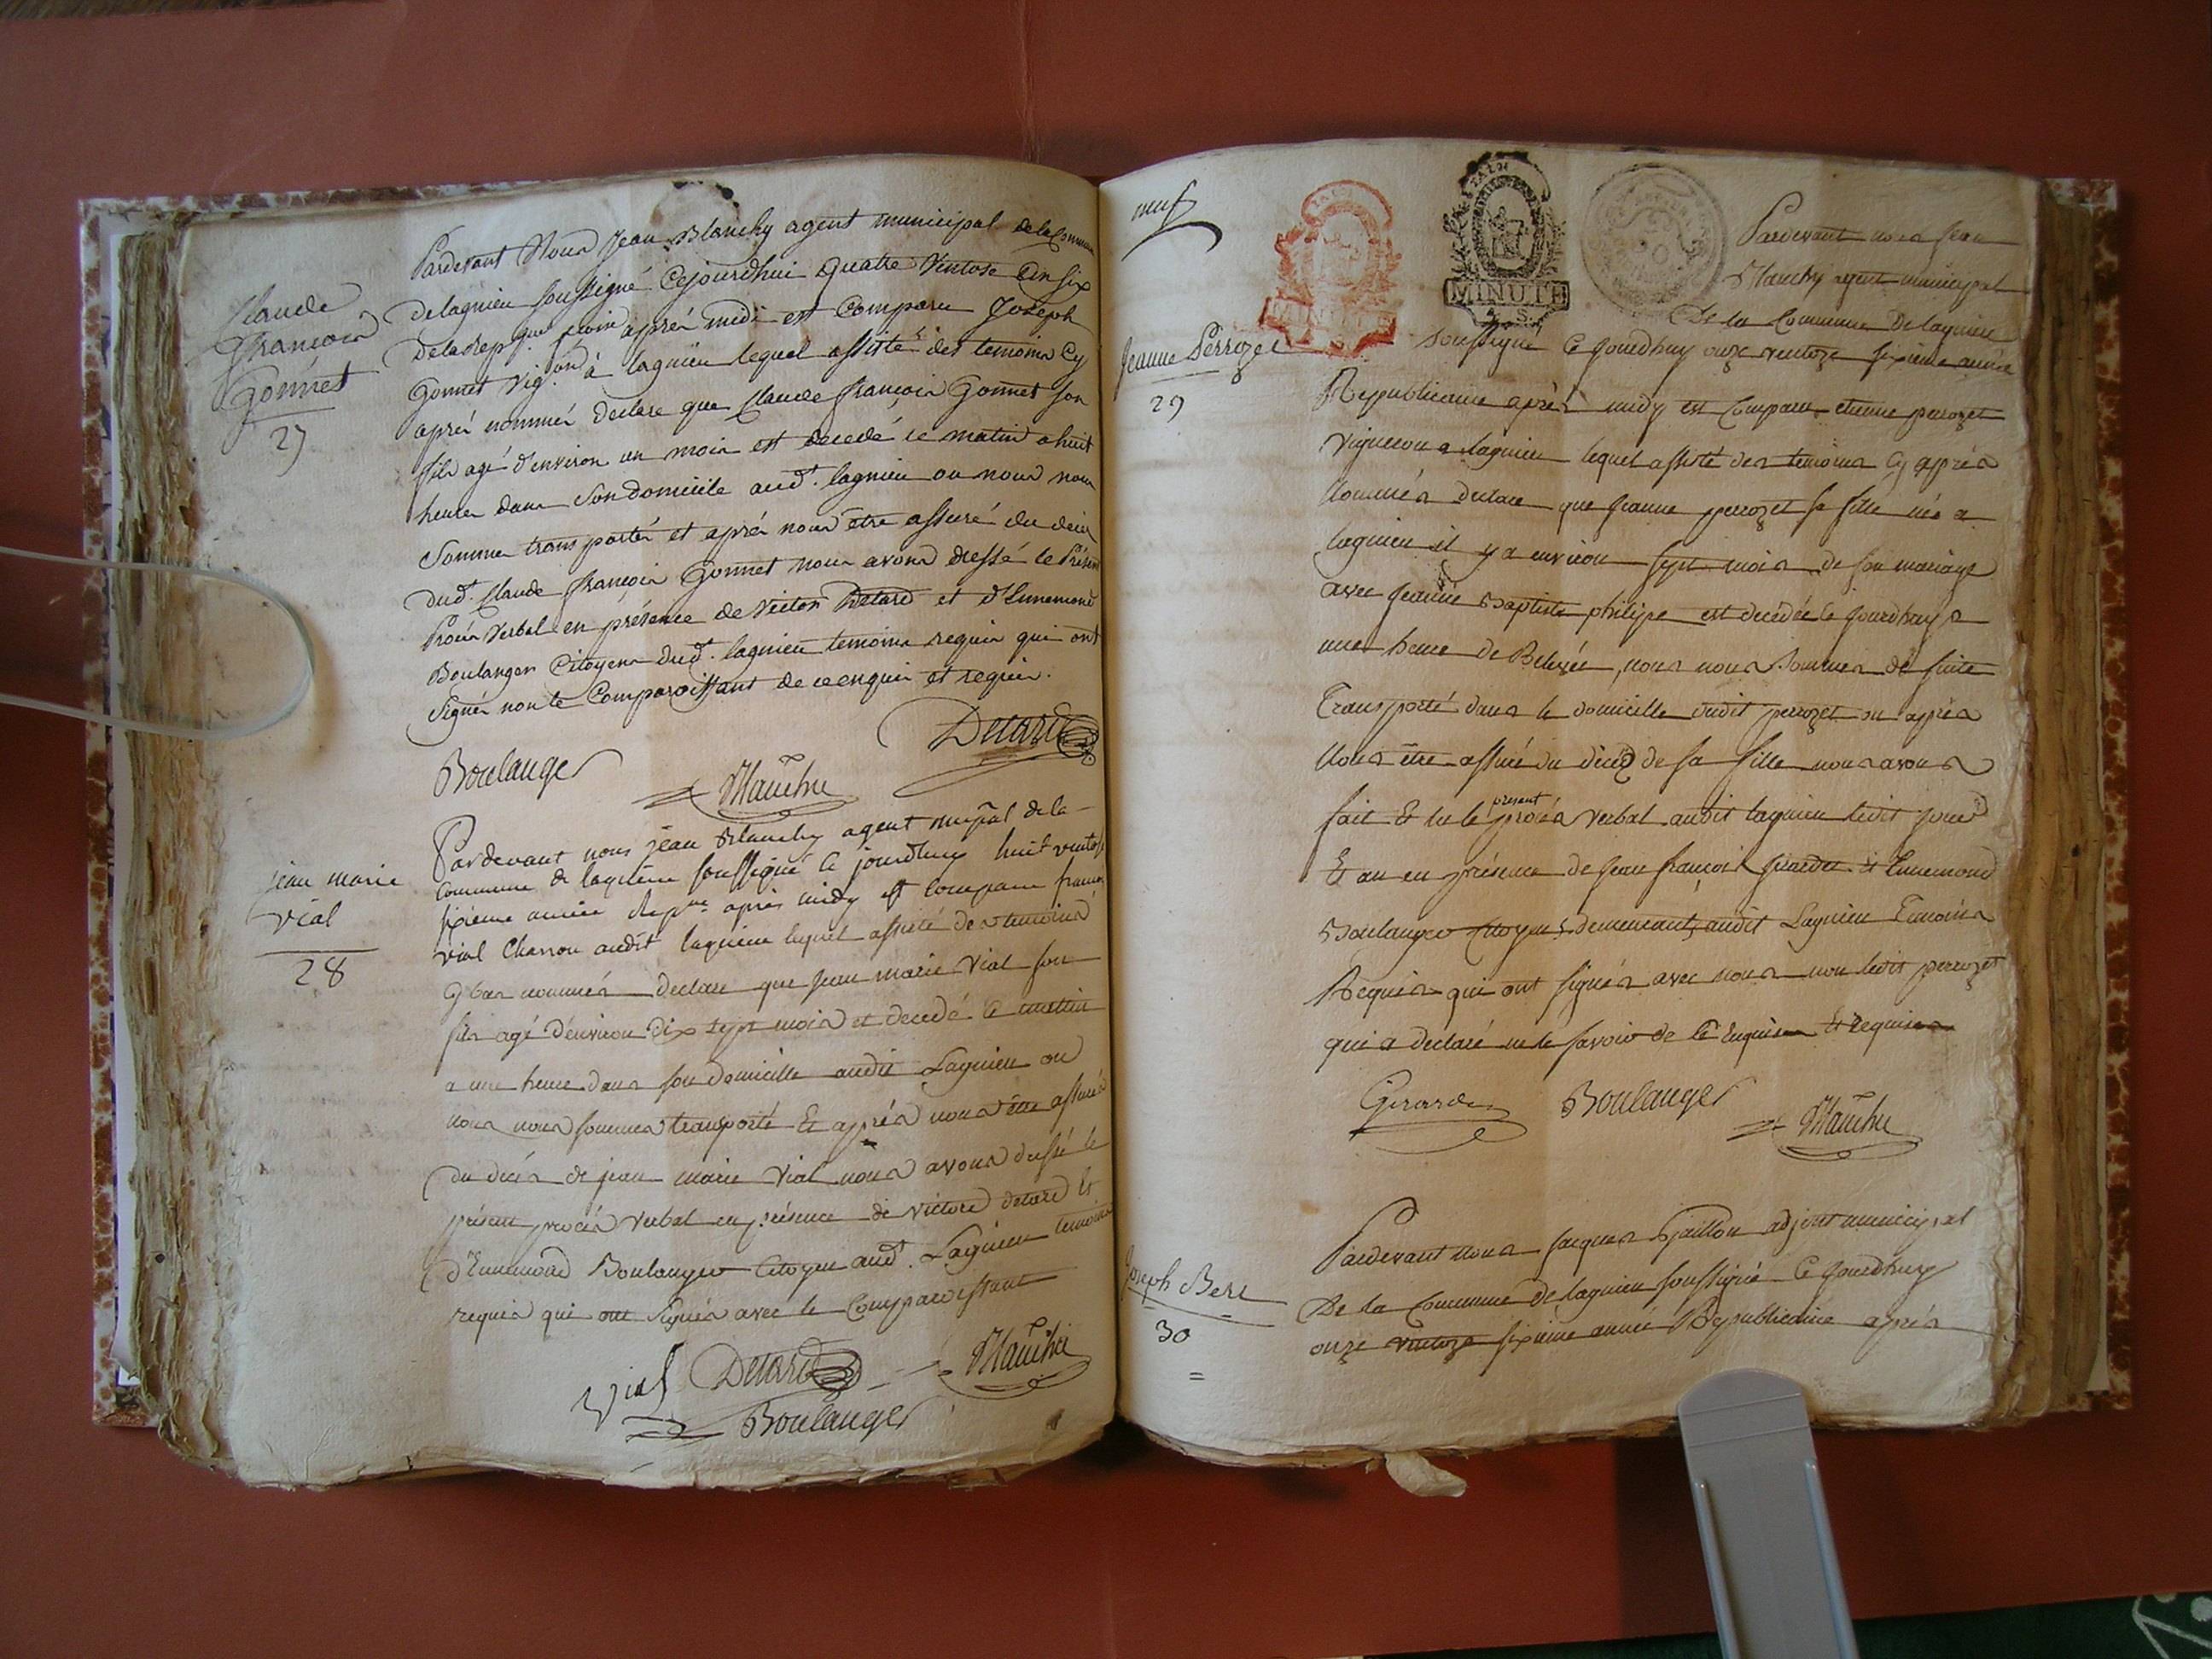 Claude
François
Gonnet
27
Pardevant Nous Jean Blanchy agent municipal de la Commune
delagnieu soussigné Cejourdhui quatre Ventose an six
delarep.que francoise après midi est Comparu Joseph
Gonnet Vig.on à lagnieu lequel assisté des temoins Cy
après nommés declare que Claude françois Gonnet son
fils agé d'environ un mois est decedé ce matin a huit
heures dans son domicile aud.t lagnieu ou nous nous
Sommes transportés et après nous être assuré du deces
dud.t Claude françois Gonnet nous avons dressé le Présent
Procès Verbal en présence de Victor Detard et d'Ennemond
Boulanger Citoyens dud.t lagnieu temoins requis qui ont
Signés non le Comparoissant de ce enquis et requis.
Detard
Boulanger
Blanchy
jean marie
vial
28
Pardevant nous jean Blanchy agent mupal de la
Commune de lagnieu soussigné Ce jourdhuy huit ventose
sixieme année Repne après midy est Comparu francois
vial Charron audit lagnieu lequel assisté des temoins
Cy bas nommés declare que jean marie vial son
fils agé d'environ dix sept mois est decedé Ce mattin
a une heure dans son domicille audit Lagnieu ou
nous nous sommes transporté Et après nous être assuré
du decès de jean marie vial nous avons dressé le
présent procès verbal en présence de victore detard Et
d'Ennemond Boulanger Citoyen aud.t Lagnieu temoins
requis qui ont Signés avec le Comparoissant
Vial Detard Blanchy
Boulanger
neuf
MINUTE
MINUTE
Jeanne Perrozet
29
Pardevant nous jean
Blanchy agent municipal
De la Commune De lagnieu
soussigné Ce jourdhuy onze ventoze sixieme année
Republicaine après midy est Comparu etienne perrozet
vigneron a lagnieu lequel assisté des temoins Cy après
Nommés declare que jeanne perrozet sa fille née a
lagnieu il y a environ sept mois de son mariage
avec jeanne Baptiste philipe est decédée Ce jourdhuy a
une heure de Relevée, nous nous sommes de suite
Transporté dans le domicille dudit perrozet ou après
Nous être assuré du décé de sa fille nous avons
fait Et lu le présent procès verbal audit lagnieu ledit jour
Et an en présence de jean françois girardo Et Ennemond
Boulanger Citoyens demeurants audit Lagnieu Temoins
Requis qui ont signés avec nous non ledit perrozet
qui a declaré ne le savoir de Ce Enquis Et Requis
Girardo Boulanger Blanchy
Joseph Bere
30
Pardevant nous jacques adjoint municipal
De la Commune de lagnieu soussigné Ce jourdhuy
onze ventoze sixieme année Republicaine après